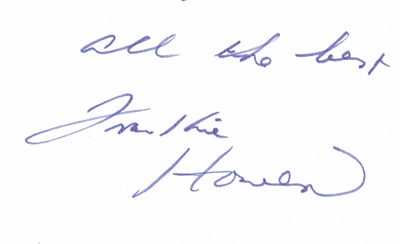 all the best
Frankie
Howerd